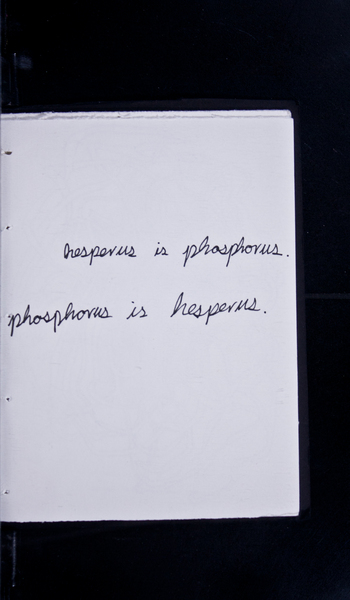 hesperus is phosphorus.
phosphorus is hesperus.